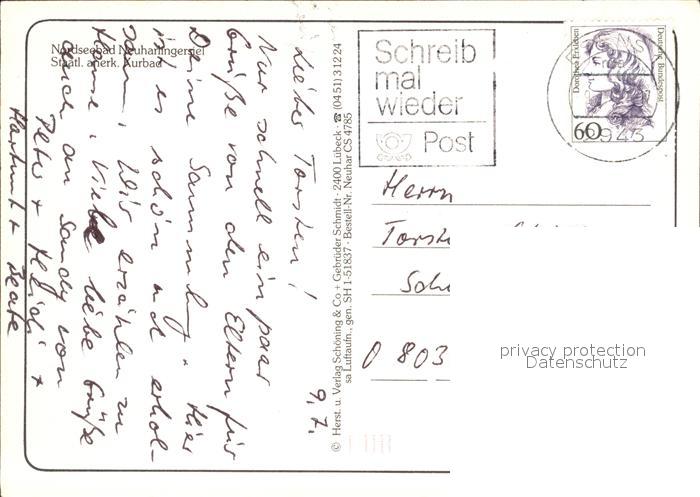 Nordseebad Neuharlingersiel
Staatl. anerk. Kurbad
9.7.
Lieber Torsten!
Nur schnell ein paar
Grüße von den Eltern für
Deine Sammlung. Hier
ist es schön und erhol-
sam. Wir erzählen zu
Hause. Viele liebe Grüße
auch an Sandy von
Peter + Heidi +
Hartmut + Beate
© Herst. u. Verlag Schöning & Co + Gebrüder Schmidt · 2400 Lübeck · ☎ (04 51) 3 12 24
sa Luftaufn., gen. SH 1-51837 · Bestell-Nr. Neuhar CS 4785
Schreib
mal
wieder
Post
Dorothea Erxleben
Deutsche Bundespost
60
2943
Herrn
Torste
Sch
O 803
privacy protection
Datenschutz